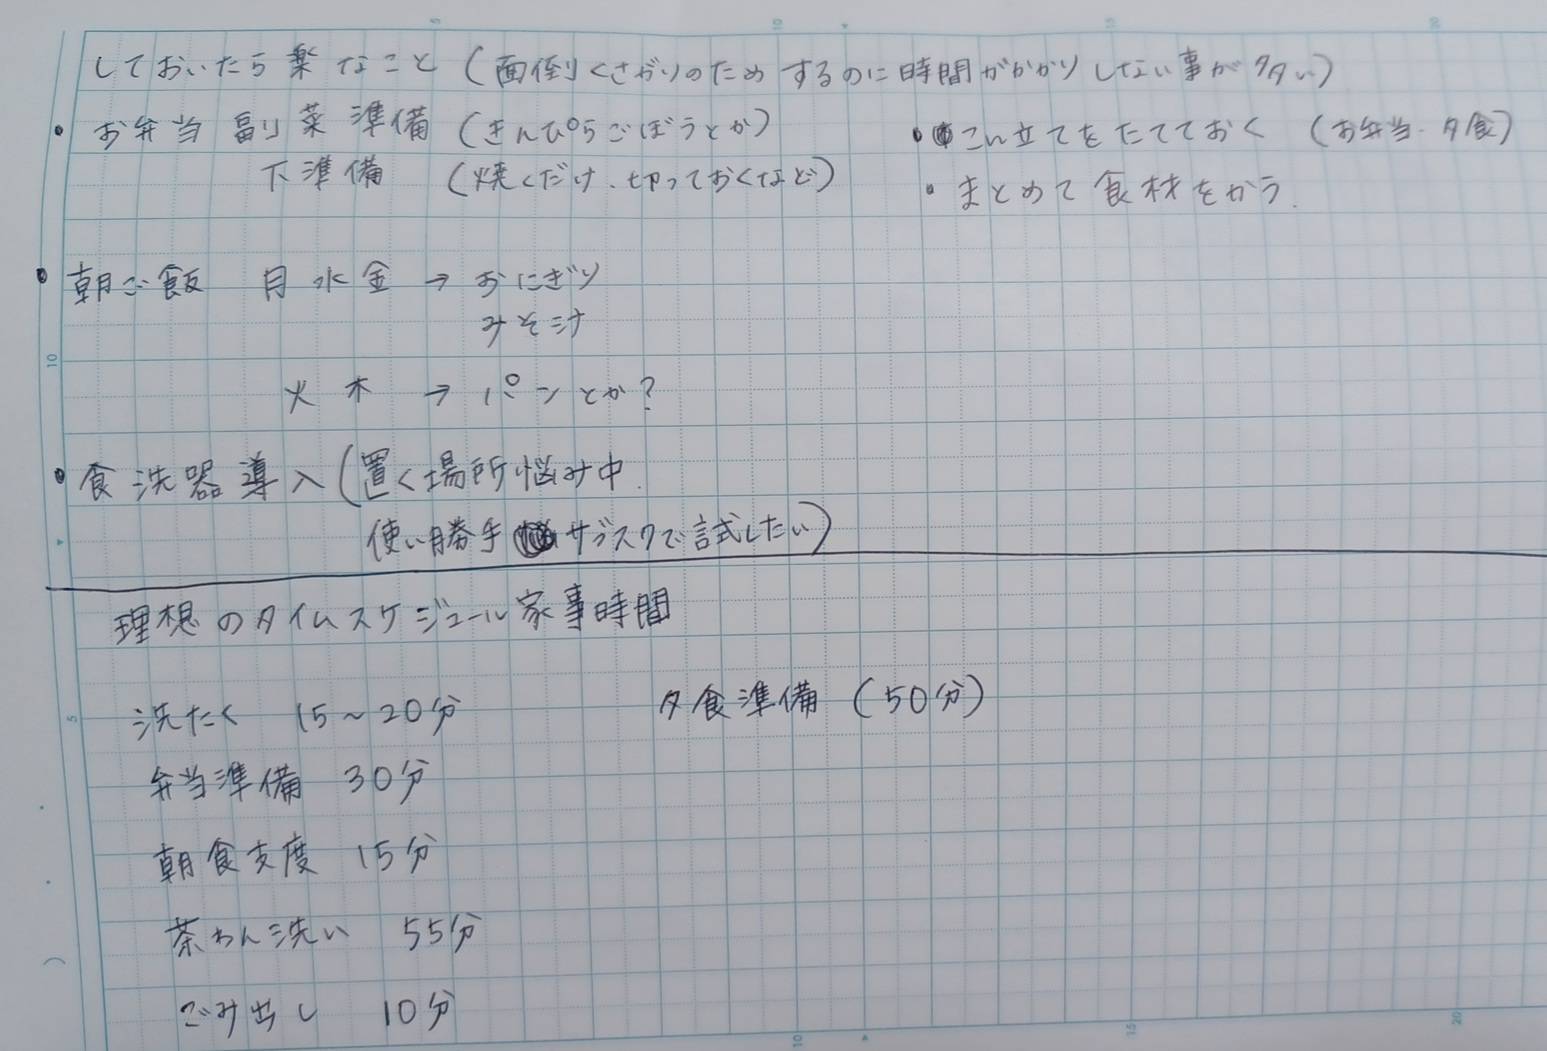 しておいたら楽なこと (面倒くさがりのため するのに時間がかかり しない事が多い)
・お弁当 副菜 準備 (きんぴらごぼうとか)
下準備 (焼くだけ、切っておくなど)
・こん立てをたてておく (お弁当・夕食)
・まとめて食材をかう.
・朝ご飯 月 水 金 → おにぎり
みそ汁
火 木 → パンとか?
・食洗器導入 (置く場所悩み中.
使い勝手 サブスクで試したい)
理想のタイムスケジュール家事時間
洗たく 15~20分
夕食準備 (50分)
弁当準備 30分
朝食支度 15分
茶わん洗い 55分
ごみ出し 10分
5
10
15
20
10
5
10
15
20